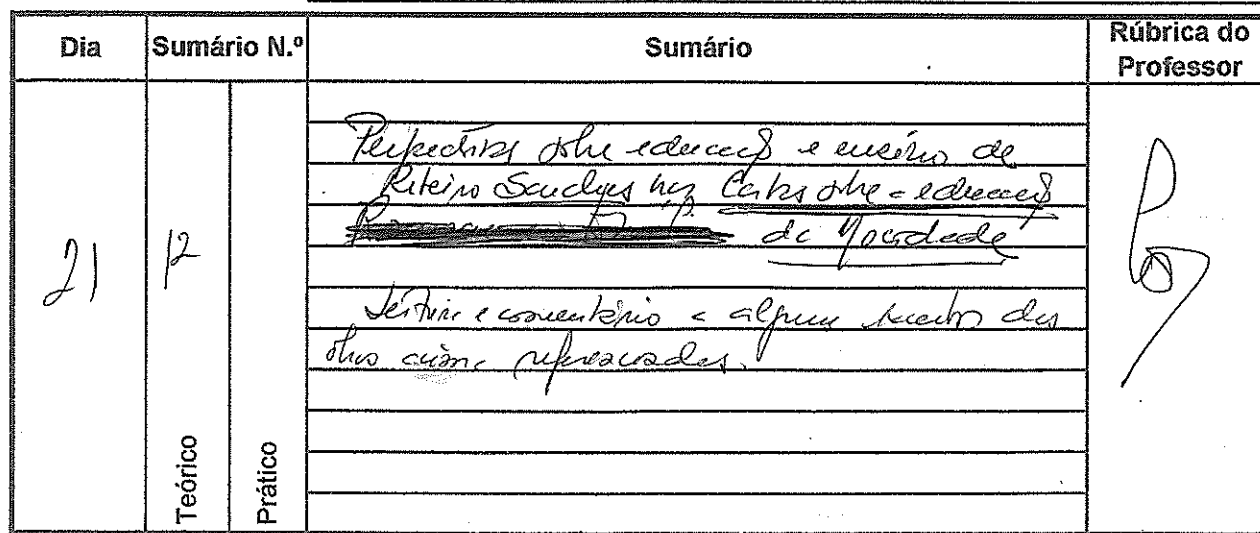 Dia Sumário N.º Sumário Rúbrica do Professor
21 12
Perspectivas sobre educação e ensino de
Ribeiro Sanches nas Cartas sobre a educação
da Mocidade
Leitura e comentário a alguns trechos das
obras acima referenciadas.
Teórico
Prático